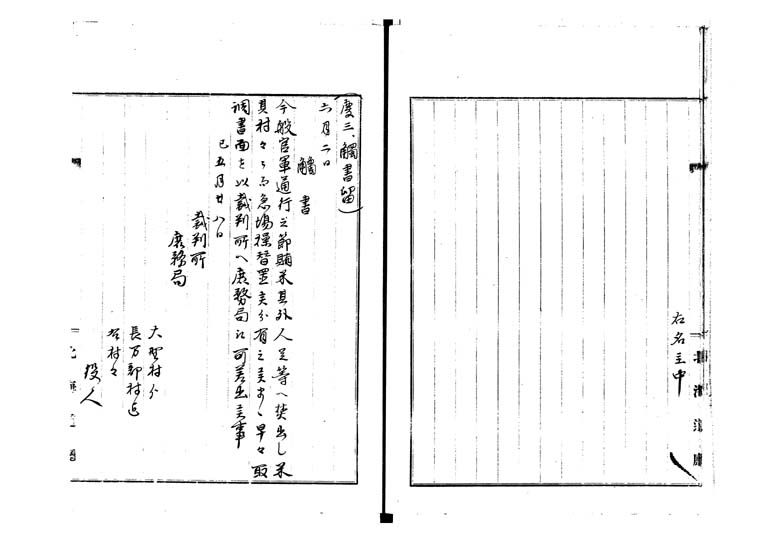 右名主中
(度三、觸書留)
六月二日
觸書
今般官軍通行之節賄米其外人足等へ焚出し米
其村々ニ而急場操替置候分有之候ハヽ早々取
調書面を以裁判所へ庶務局江可差出候事
巳五月廿八日
裁判所
庶務局
大野村ゟ
長万部村迄
村々
役人